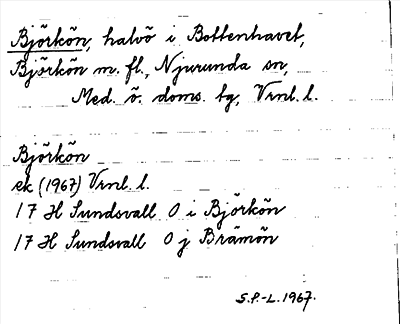 Björkön, halvö i Bottenhavet,
Björkön m. fl., Njurunda sn,
Med. ö. doms. tg, Vrnl. l.
Björkön
ek (1967) Vrnl. l.
17 H Sundsvall O i Björkön
17 H Sundsvall O j Brämön
S.P.-L. 1967.